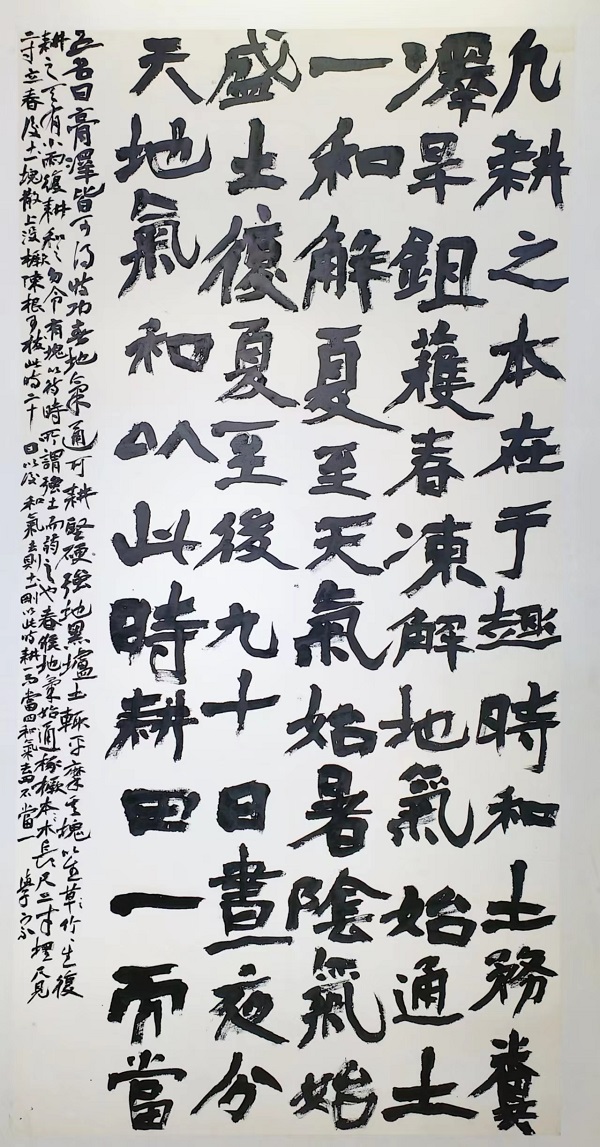 凡耕之本在于趣時和土務糞
澤早鉏獲春凍解地氣始通土
一和解夏至天氣始暑陰氣始
盛土復夏至後九十日晝夜分
天地氣和以此時耕田一而當
五名曰膏澤皆可得時功春地氣通可耕堅硬強地黑壚土輒平摩其塊以生草草生復
耕之天有小雨復耕和之勿令有塊以待時所謂強土而弱之也春候地氣始通椓橛木長尺二寸埋尺見
二寸立春後土塊散上沒橛陳根可拔此時二十日以後和氣去則土剛以此時耕而當四和氣去不當一